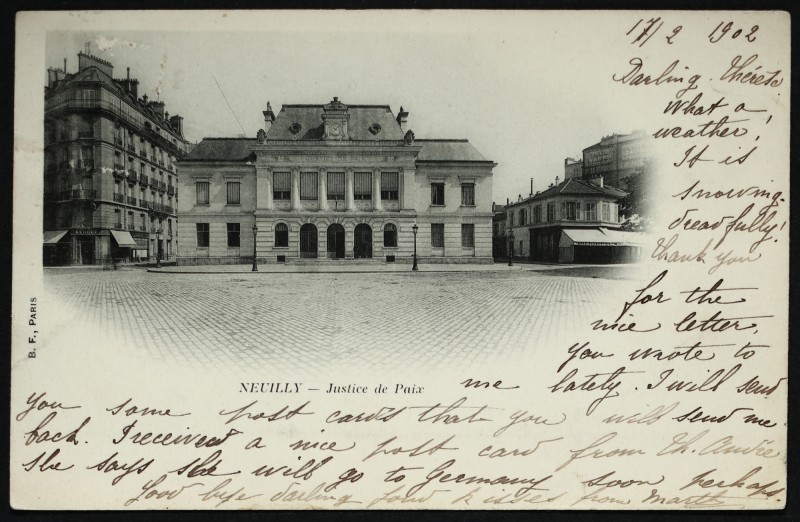 17/2 1902
Darling Thérèse
What a
weather!
It is
snowing
dreadfully!
Thank you
for the
nice letter,
you wrote to
me lately. I will send
you some post cards that you will send me
back. I received a nice post card from Th. André
She says she will go to Germany soon perhaps.
Good bye darling fond kisses from
NEUILLY — Justice de Paix
B. F., PARIS